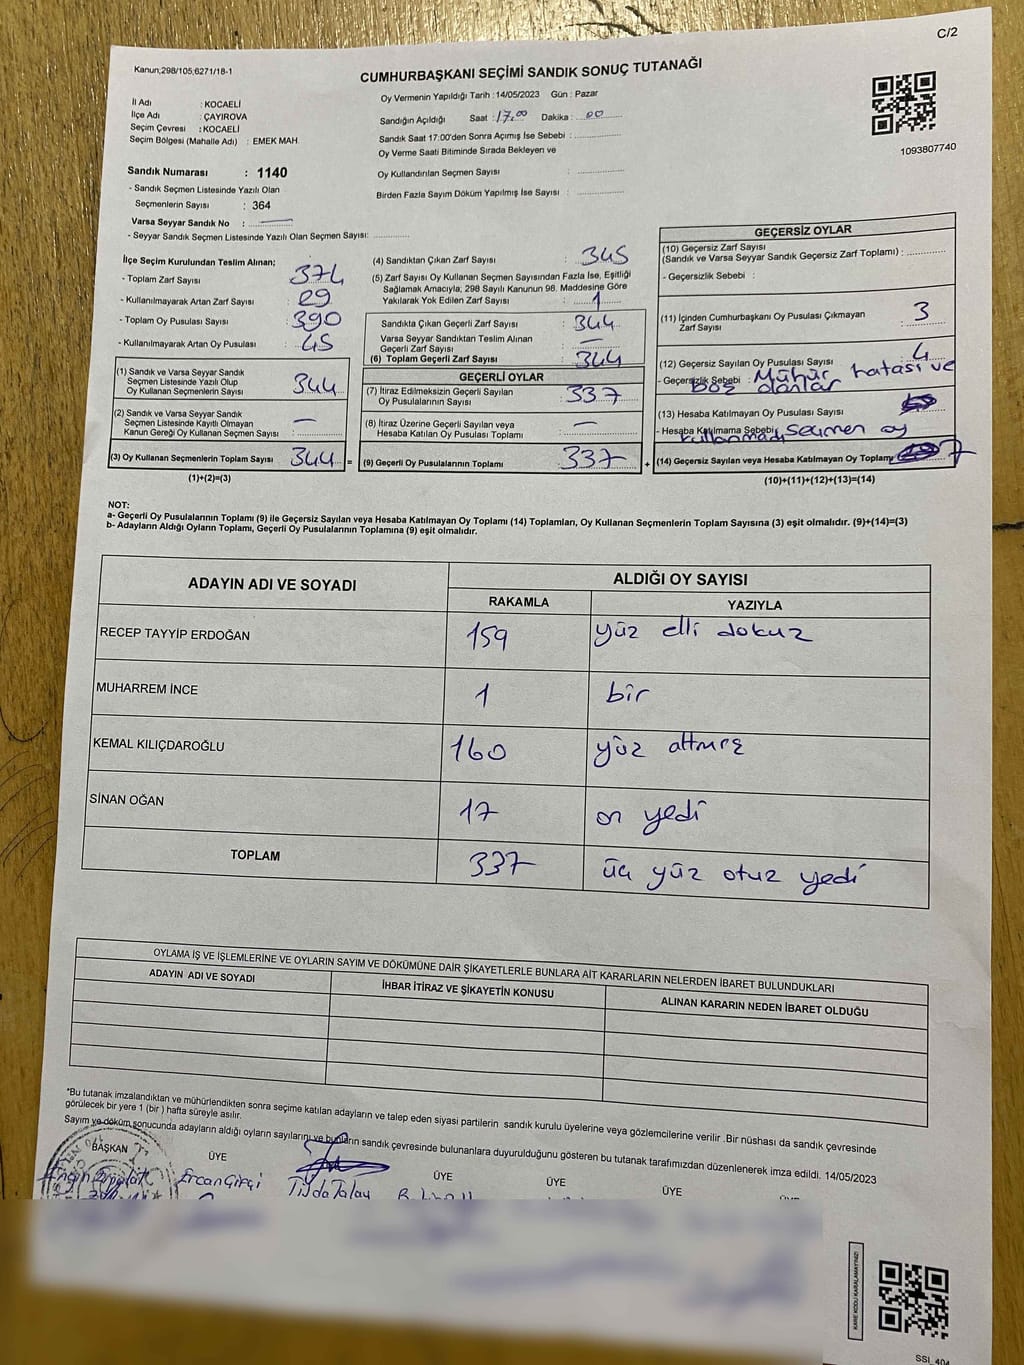 C/2
Kanun,298/105;6271/18-1
CUMHURBAŞKANI SEÇİMİ SANDIK SONUÇ TUTANAĞI
İl Adı : KOCAELİ
İlçe Adı : ÇAYIROVA
Seçim Çevresi : KOCAELİ
Seçim Bölgesi (Mahalle Adı) : EMEK MAH.
Oy Vermenin Yapıldığı Tarih : 14/05/2023 Gün : Pazar
Sandığın Açıldığı Saat : 17.00 Dakika : 00
Sandık Saat 17:00'den Sonra Açımış İse Sebebi :
Oy Verme Saati Bitiminde Sırada Bekleyen ve
Oy Kullandırılan Seçmen Sayısı :
Birden Fazla Sayım Döküm Yapılmış İse Sayısı :
1093807740
Sandık Numarası : 1140
- Sandık Seçmen Listesinde Yazılı Olan
Seçmenlerin Sayısı : 364
Varsa Seyyar Sandık No : —
- Seyyar Sandık Seçmen Listesinde Yazılı Olan Seçmen Sayısı:
İlçe Seçim Kurulundan Teslim Alınan;
- Toplam Zarf Sayısı : 374
- Kullanılmayarak Artan Zarf Sayısı : 29
- Toplam Oy Pusulası Sayısı : 390
- Kullanılmayarak Artan Oy Pusulası : 45
(1) Sandık ve Varsa Seyyar Sandık
Seçmen Listesinde Yazılı Olup
Oy Kullanan Seçmenlerin Sayısı : 344
(2) Sandık ve Varsa Seyyar Sandık
Seçmen Listesinde Kayıtlı Olmayan
Kanun Gereği Oy Kullanan Seçmen Sayısı : —
(3) Oy Kullanan Seçmenlerin Toplam Sayısı : 344 =
(1)+(2)=(3)
(4) Sandıktan Çıkan Zarf Sayısı : 345
(5) Zarf Sayısı Oy Kullanan Seçmen Sayısından Fazla İse, Eşitliği
Sağlamak Amacıyla, 298 Sayılı Kanunun 98. Maddesine Göre
Yakılarak Yok Edilen Zarf Sayısı : 1
Sandıkta Çıkan Geçerli Zarf Sayısı : 344
Varsa Seyyar Sandıktan Teslim Alınan
Geçerli Zarf Sayısı : —
(6) Toplam Geçerli Zarf Sayısı : 344
GEÇERLİ OYLAR
(7) İtiraz Edilmeksizin Geçerli Sayılan
Oy Pusulalarının Sayısı : 337
(8) İtiraz Üzerine Geçerli Sayılan veya
Hesaba Katılan Oy Pusulası Toplamı : —
(9) Geçerli Oy Pusulalarının Toplamı : 337 +
GEÇERSİZ OYLAR
(10) Geçersiz Zarf Sayısı
(Sandık ve Varsa Seyyar Sandık Geçersiz Zarf Toplamı) :
- Geçersizlik Sebebi :
(11) İçinden Cumhurbaşkanı Oy Pusulası Çıkmayan
Zarf Sayısı : 3
(12) Geçersiz Sayılan Oy Pusulası Sayısı : 4
- Geçersizlik Sebebi : Mühür hatası ve
boş olanlar
(13) Hesaba Katılmayan Oy Pusulası Sayısı :
- Hesaba Katılmama Sebebi : Seçmen oy
kullanmadı
(14) Geçersiz Sayılan veya Hesaba Katılmayan Oy Toplamı : 7
(10)+(11)+(12)+(13)=(14)
NOT:
a- Geçerli Oy Pusulalarının Toplamı (9) ile Geçersiz Sayılan veya Hesaba Katılmayan Oy Toplamı (14) Toplamları, Oy Kullanan Seçmenlerin Toplam Sayısına (3) eşit olmalıdır. (9)+(14)=(3)
b- Adayların Aldığı Oyların Toplamı, Geçerli Oy Pusulalarının Toplamına (9) eşit olmalıdır.
ADAYIN ADI VE SOYADI ALDIĞI OY SAYISI
RAKAMLA YAZIYLA
RECEP TAYYİP ERDOĞAN 159 yüz elli dokuz
MUHARREM İNCE 1 bir
KEMAL KILIÇDAROĞLU 160 yüz altmış
SİNAN OĞAN 17 on yedi
TOPLAM 337 üç yüz otuz yedi
OYLAMA İŞ VE İŞLEMLERİNE VE OYLARIN SAYIM VE DÖKÜMÜNE DAİR ŞİKAYETLERLE BUNLARA AİT KARARLARIN NELERDEN İBARET BULUNDUKLARI
ADAYIN ADI VE SOYADI İHBAR İTİRAZ VE ŞİKAYETİN KONUSU ALINAN KARARIN NEDEN İBARET OLDUĞU
*Bu tutanak imzalandıktan ve mühürlendikten sonra seçime katılan adayların ve talep eden siyasi partilerin sandık kurulu üyelerine veya gözlemcilerine verilir .Bir nüshası da sandık çevresinde
görülecek bir yere 1 (bir ) hafta süreyle asılır.
Sayım ve döküm sonucunda adayların aldığı oyların sayılarını ve bunların sandık çevresinde bulunanlara duyurulduğunu gösteren bu tutanak tarafımızdan düzenlenerek imza edildi. 14/05/2023
BAŞKAN ÜYE ÜYE ÜYE ÜYE
Ercan Girçi Tilda Talay
KARE KODU KARALAMAYINIZ!